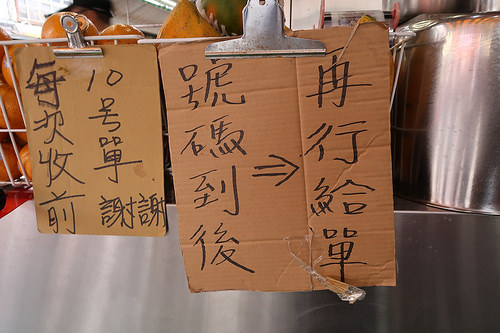 每次收前
10号單
謝謝
號碼到後
⇒
再行給單